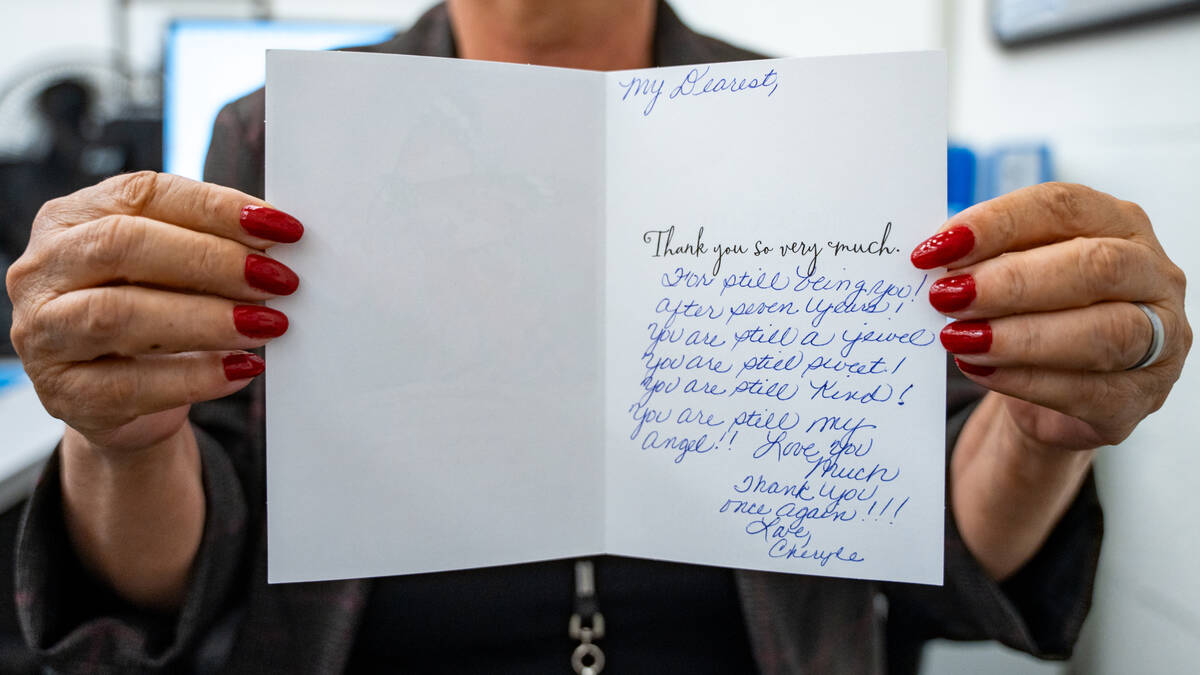 My Dearest,
Thank you so very much.
For still being you!
After seven years!
You are still a jewel
You are still sweet!
You are still Kind!
You are still my
Angel!! Love you
Much
Thank you
once again!!!
Love,
Cheryle